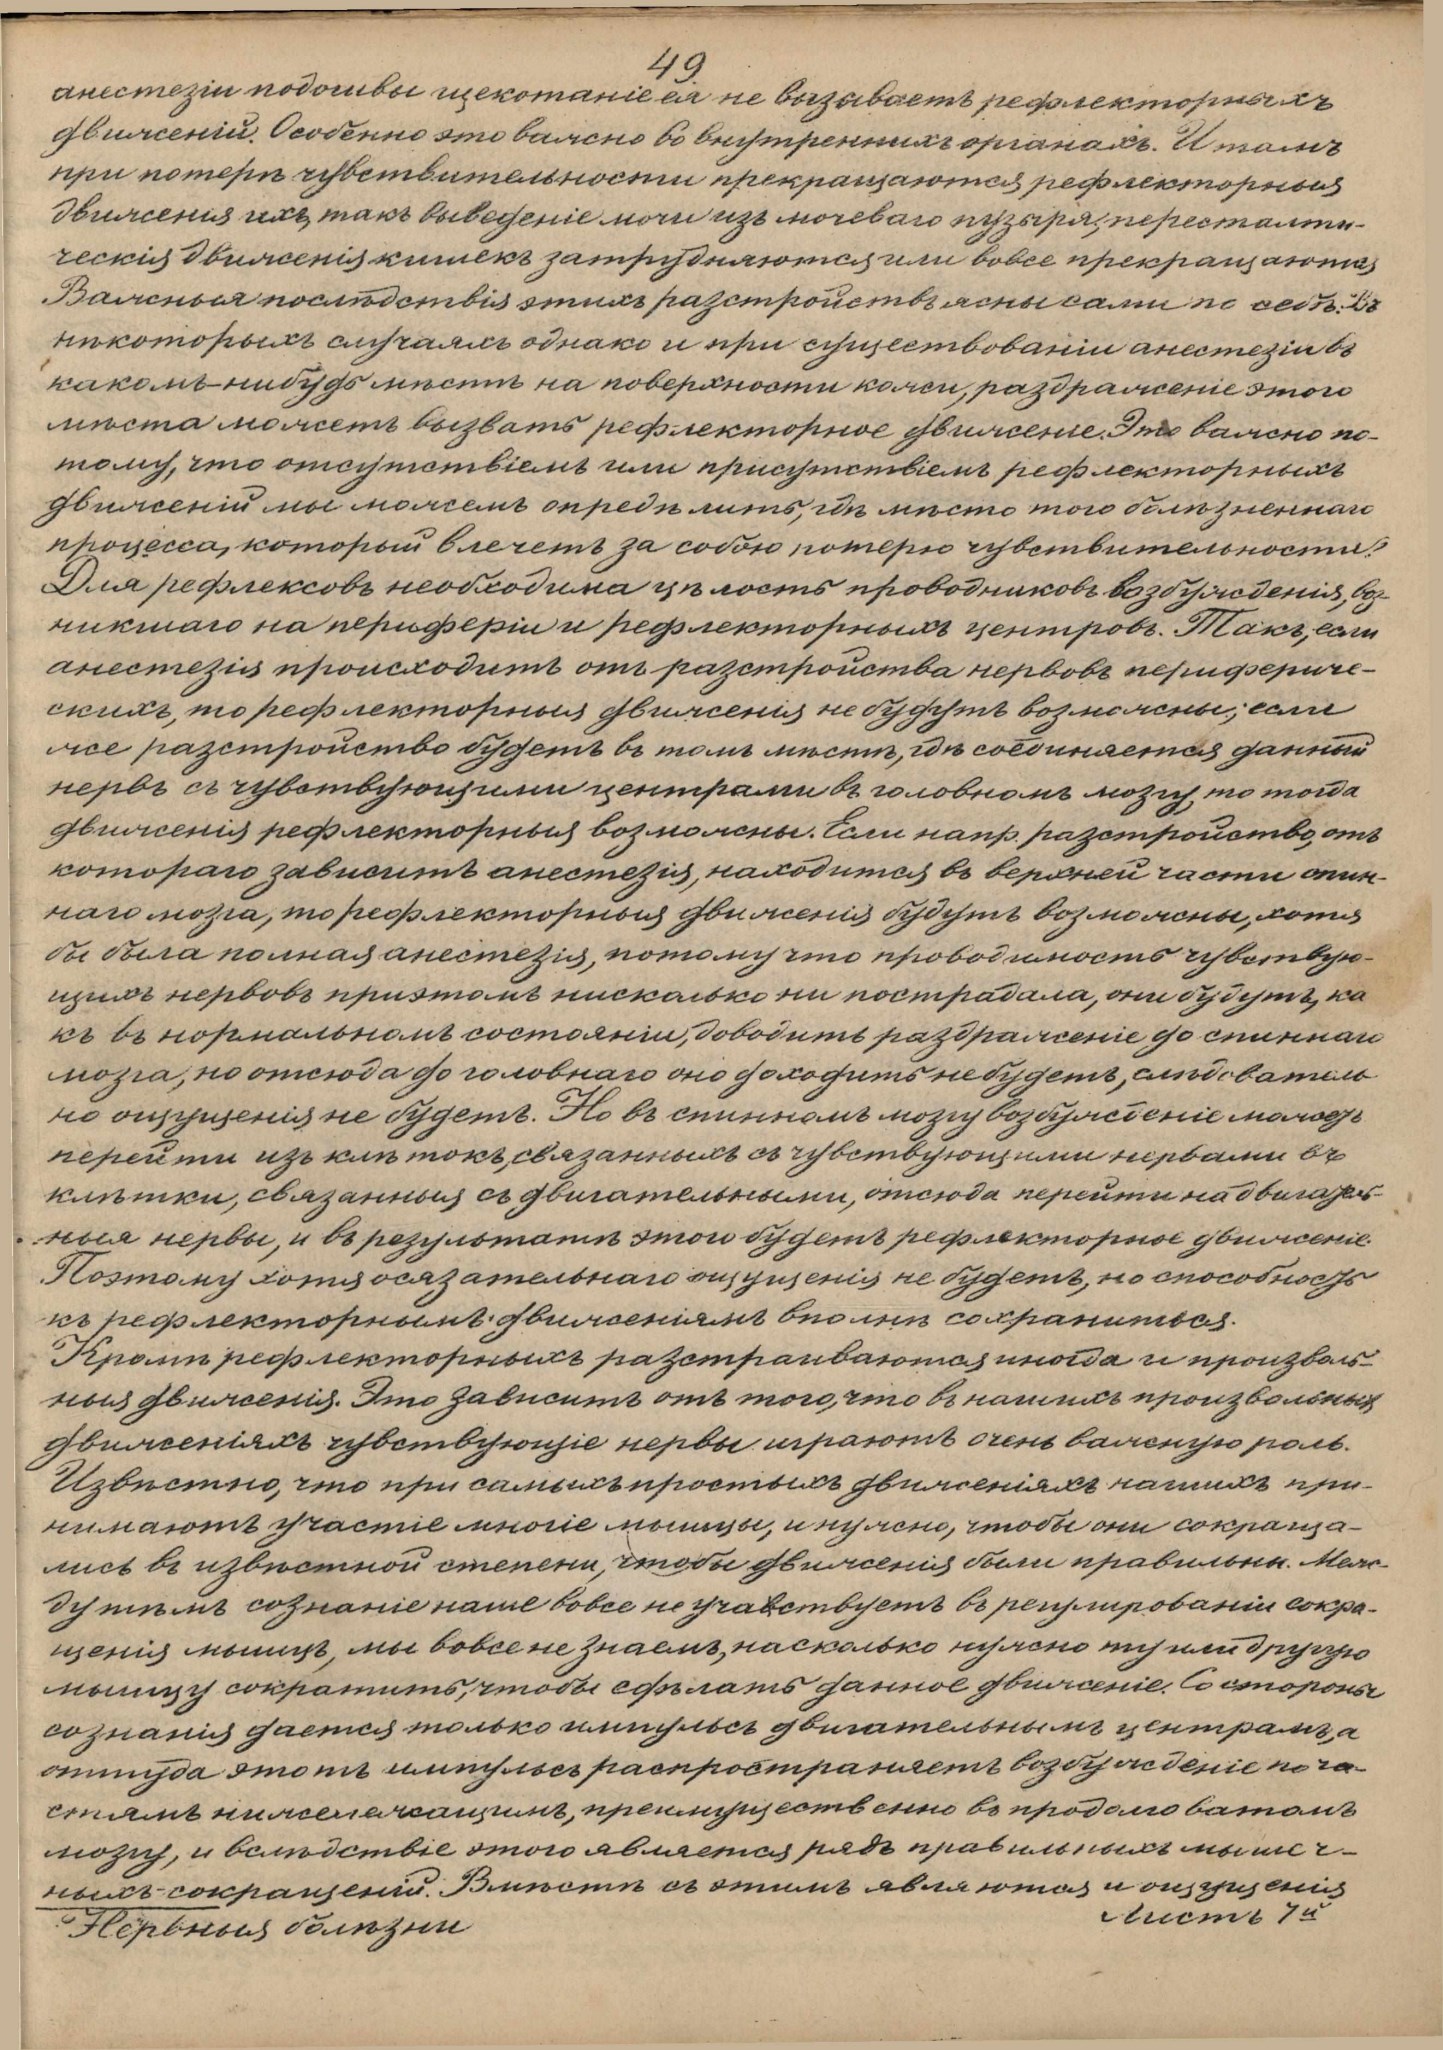 49
анестезіи подошвы щекотаніе ея не вызываетъ рефлекторныхъ
движеній. Особенно это важно во внутреннихъ органахъ. И тамъ
при потерѣ чувствительности прекращаются рефлекторныя
движенія ихъ, такъ выведеніе мочи изъ мочеваго пузыря, перестальти-
ческія движенія кишекъ затрудняются или вовсе прекращаются
Важныя послѣдствія этихъ разстройствъ ясны сами по себѣ. Въ
нѣкоторыхъ случаяхъ однако и при существованіи анестезіи въ
какомъ-нибудь мѣстѣ на поверхности кожи, раздраженіе этого
мѣста можетъ вызвать рефлекторное движеніе. Это важно по-
тому, что отсутствіемъ или присутствіемъ рефлекторныхъ
движеній мы можемъ опредѣлить, гдѣ мѣсто того болѣзненнаго
процесса, который влечетъ за собою потерю чувствительности?
Для рефлексовъ необходима цѣлость проводниковъ возбужденія, воз-
никшаго на периферіи и рефлекторныхъ центровъ. Такъ, если
анестезія происходитъ отъ разстройства нервовъ перифериче-
скихъ, то рефлекторныя движенія не будутъ возможны; если
же разстройство будетъ въ томъ мѣстѣ, гдѣ соединяется данный
нервъ съ чувствующими центрами въ головномъ мозгу, то тогда
движенія рефлекторныя возможны. Если напр. разстройство, отъ
котораго зависитъ анестезія, находится въ верхней части спин-
наго мозга, то рефлекторныя движенія будутъ возможны, хотя
бы была полная анестезія, потому что проводимость чувствую-
щихъ нервовъ приэтомъ нисколько ни пострадала, они будутъ, ка
къ въ нормальномъ состояніи, доводить раздраженіе до спиннаго
мозга, но отсюда до головнаго оно доходить не будетъ, слѣдователь
но ощущенія не будетъ. Но въ спинномъ мозгу возбужденіе можетъ
перейти изъ клѣтокъ, связанныхъ съ чувствующими нервами въ
клѣтки, связанныя съ двигательными, отсюда перейти на двигатель-
ныя нервы, и въ результатѣ этого будетъ рефлекторное движеніе.
Поэтому хотя осязательнаго ощущенія не будетъ, но способность
къ рефлекторнымъ движеніямъ вполнѣ сохраниться.
Кромѣ рефлекторныхъ разстраиваются иногда и произволь-
ныя движенія. Это зависитъ отъ того, что въ нашихъ произвольныхъ
движеніяхъ чувствующіе нервы играютъ очень важную роль.
Извѣстно, что при самыхъ простыхъ движеніяхъ нашихъ при-
нимаютъ участіе многіе мышцы, и нужно, чтобы они сокраща-
лись въ извѣстной степени, чтобы движенія были правильны. Меж-
ду тѣмъ сознаніе наше вовсе не участвуетъ въ регулированіи сокра-
щенія мышцъ, мы вовсе не знаемъ, насколько нужно ту или другую
мышцу сократить, чтобы сдѣлать данное движеніе. Со стороны
сознанія дается только импульсъ двигательнымъ центрамъ, а
оттуда этотъ импульсъ распространяетъ возбужденіе по ча-
стямъ нижележащимъ, преимущественно въ продолговатомъ
мозгу, и вслѣдствіе этого является рядъ правильныхъ мышеч-
ныхъ сокращеній. Вмѣстѣ съ этимъ являются и ощущенія
Нервныя болѣзни
Листъ 7й